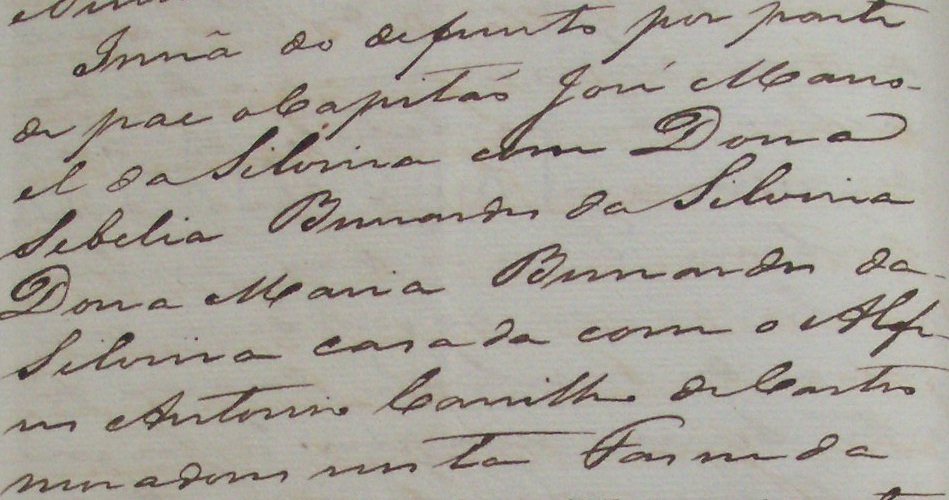 Irmã do defunto por parte
de pae o Capitão José Mano-
el da Silveira com Dona
Sebelia Bernardes da Silveira
Dona Maria Bernardes da
Silveira casada com o Alfe-
res Antonio Camillo de Castro
moradores nesta Fasenda